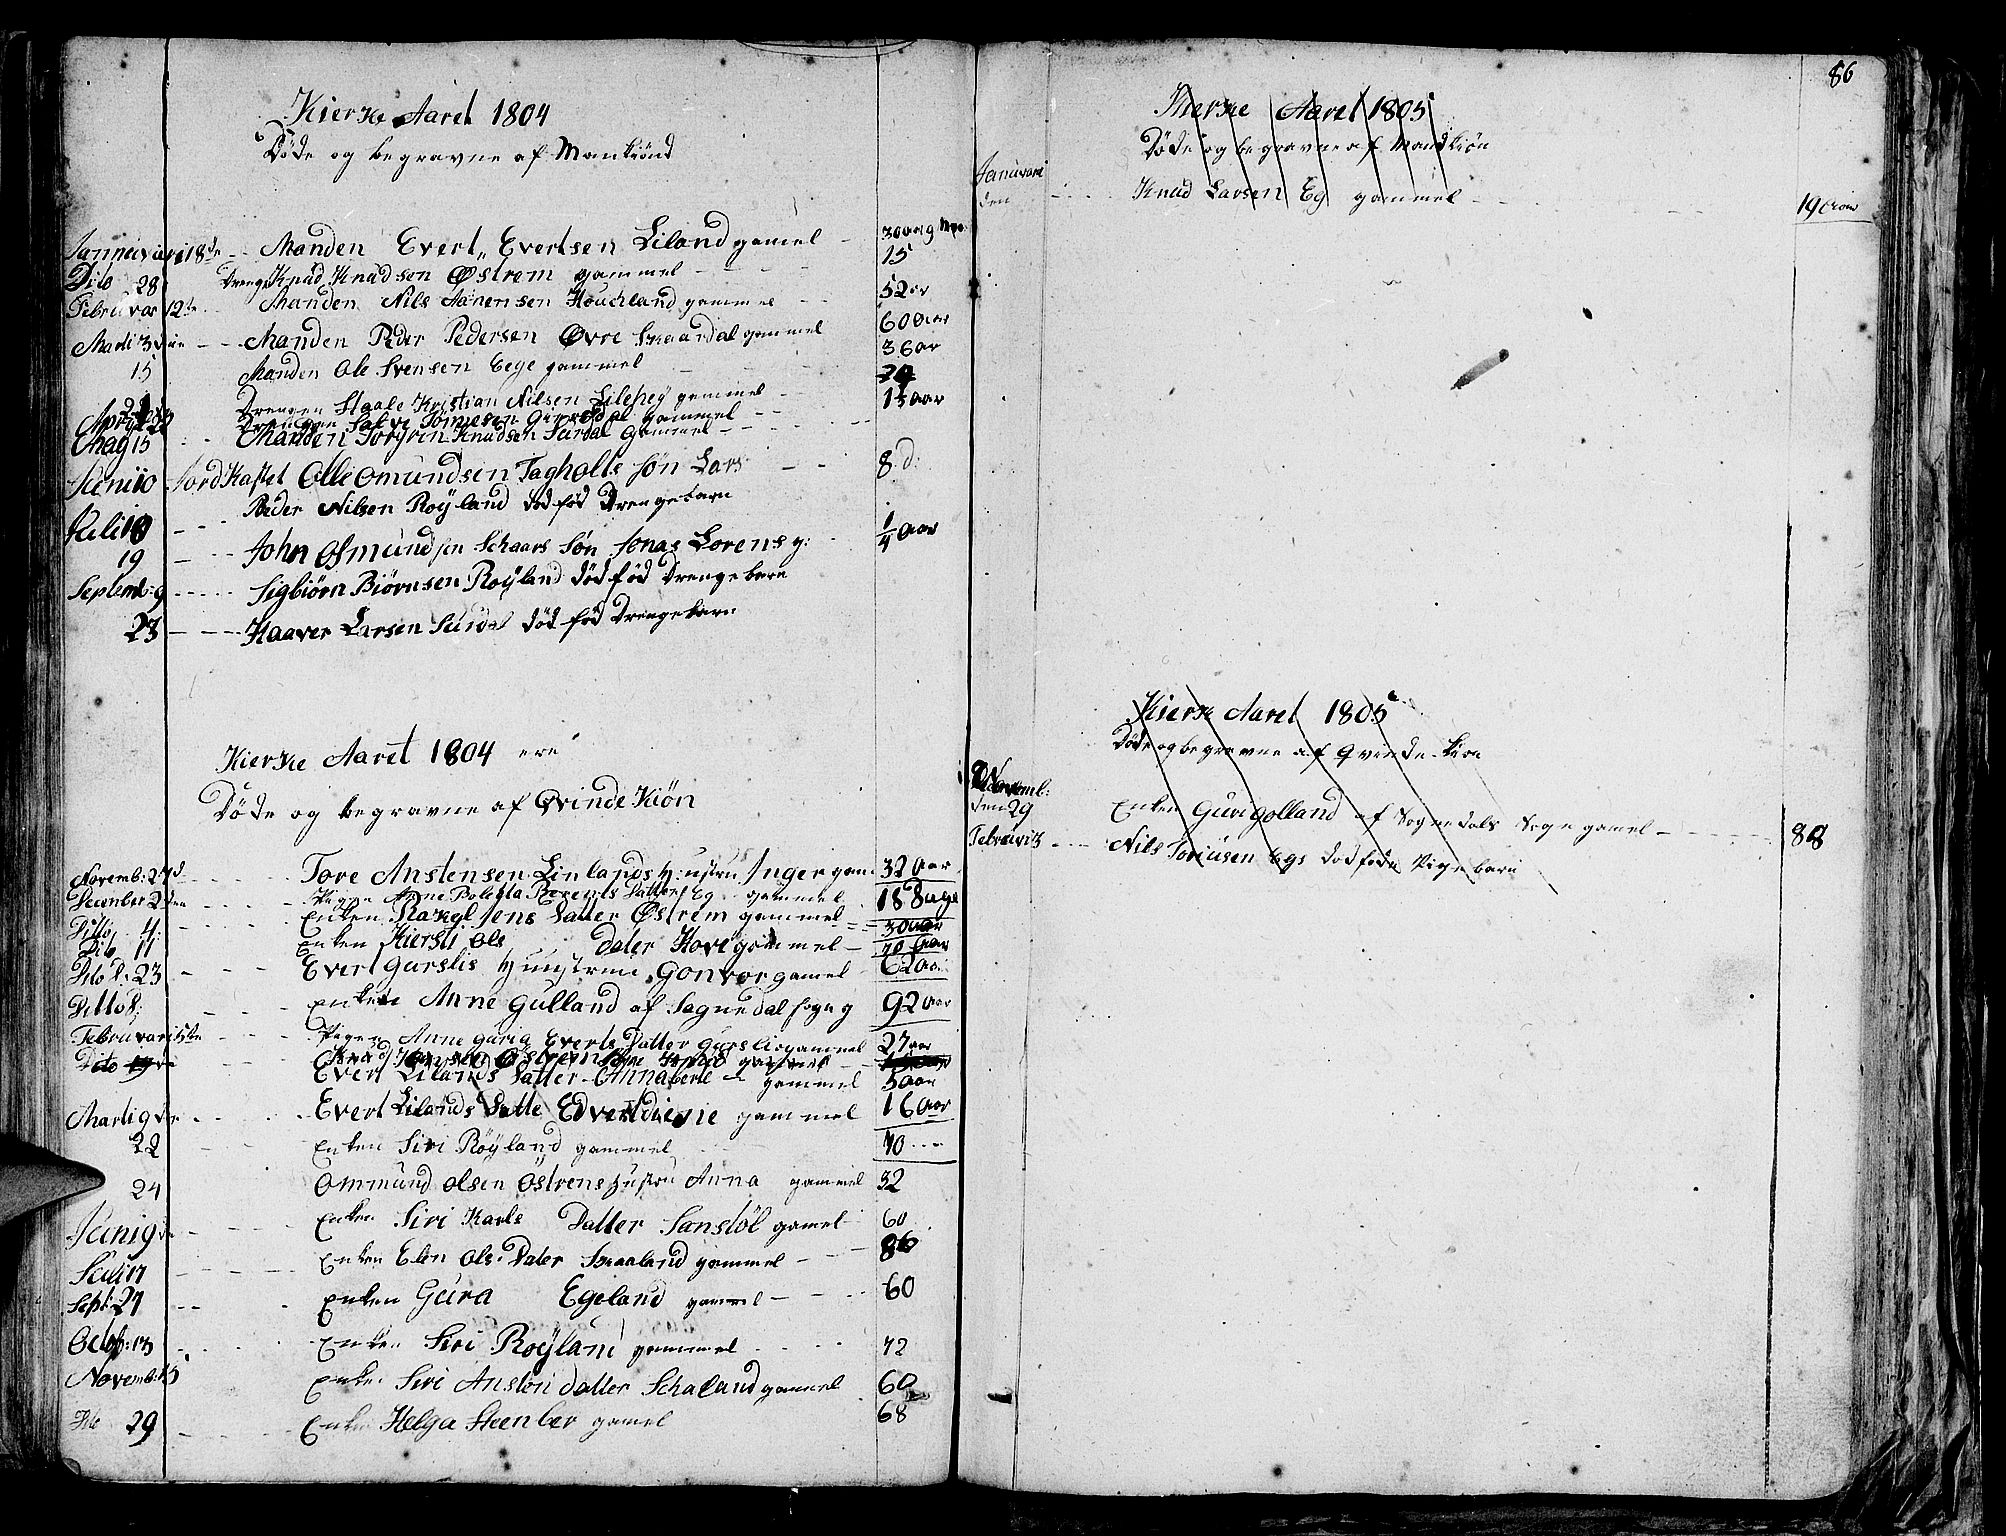 Kierke Aaret 1804
Døde og begravne af Mankiønd
Januvari 18de Manden Evert Evertsen Liland gamel 30 og 9
Dito 28 Dreng Knud Knudson Østrem gammel 15
Februvar 12te Manden Nils Aanensen Houchland gammel 52 ar
Marti 3die Manden Peder Pedersen Øvre Skaardal gammel 60 aar
15 Manden Ole Svensen Eege gammel 36 ar
Drengen Staale Kristian Nilsen Lilehey gammel
April Drengen Salve gammel
May 15 Manden Knudsen Surdal gammel
Juni 10 Jord Kastet Olle Omundsen Tagholts søn Lars 8 d:
Juli 10 Peder Nilsen Røyland død fød Drengebarn
19 John Osmundsen Schaars Søn Jonas Lorens g: 1/4 Aar
Septemb: 9 Sigbiørn Biørnsen Røyland død fød Drengebarn
23 Haaver Larsen Surdal død fød Drengebarn
Kierke Aaret 1804 ere
Døde og begravne af Qvinde Kiøn
Novemb: 27d Tore Anstensen Linlands Hustru Inger gam: 32 aar
December 2den Pigen Anne Boletta Datter Eg gammel 18 uge
Ditto 4 Enken Rakel Jens Datter Østrem gammel 30 aar
Dito 11 Enken Kiersti Ols Dater Hove gammel
Dito D: 23 Evert Gurslis Huustrue Gonvor gamel 62 aar
Ditto d: Enken Anne Gulland af Sognedal sogn g 92 aar
Februvari 15te Pigen Anne Guria Everts Datter Gursli gammel 27 aar
Dito Knud Østrem
Evert Lilands Datter Annaberte gammel 5 aar
Marti 9de Evert Lilands Datte Edvertdiene gammel 16 aar
22 Enken Siri Røyland gammel 70
24 Ommund Olsen Østrens Hustru Anna gammel 32
Juni 9de Enken Siri Karls Datter Sanstøl gamel 60
Juli 17 Enken Elen Ols: Dater Skaaland gammel 86
Sept: 27 Enken Gura Egeland gammel 60
Octob: 13 Enken Siri Røyland gammel 72
Novemb: 15 Enken Siri Ansten datter Schaland gammel 60
Dito 29 Enken Helga Steenber gamel 68
86
Kierke Aaret 1805
Døde og begravne af Mandkiøn
Januvari
den Knud Larsen Eg gammel 19 aar
Kierke Aaret 1805
Døde og begravne af Qvinde-kiøn
den 29 Enken Guri Golland af Sognedals Sogn gamel 88
Februvari Nils Toriusen Egs dødføde Pigebarn